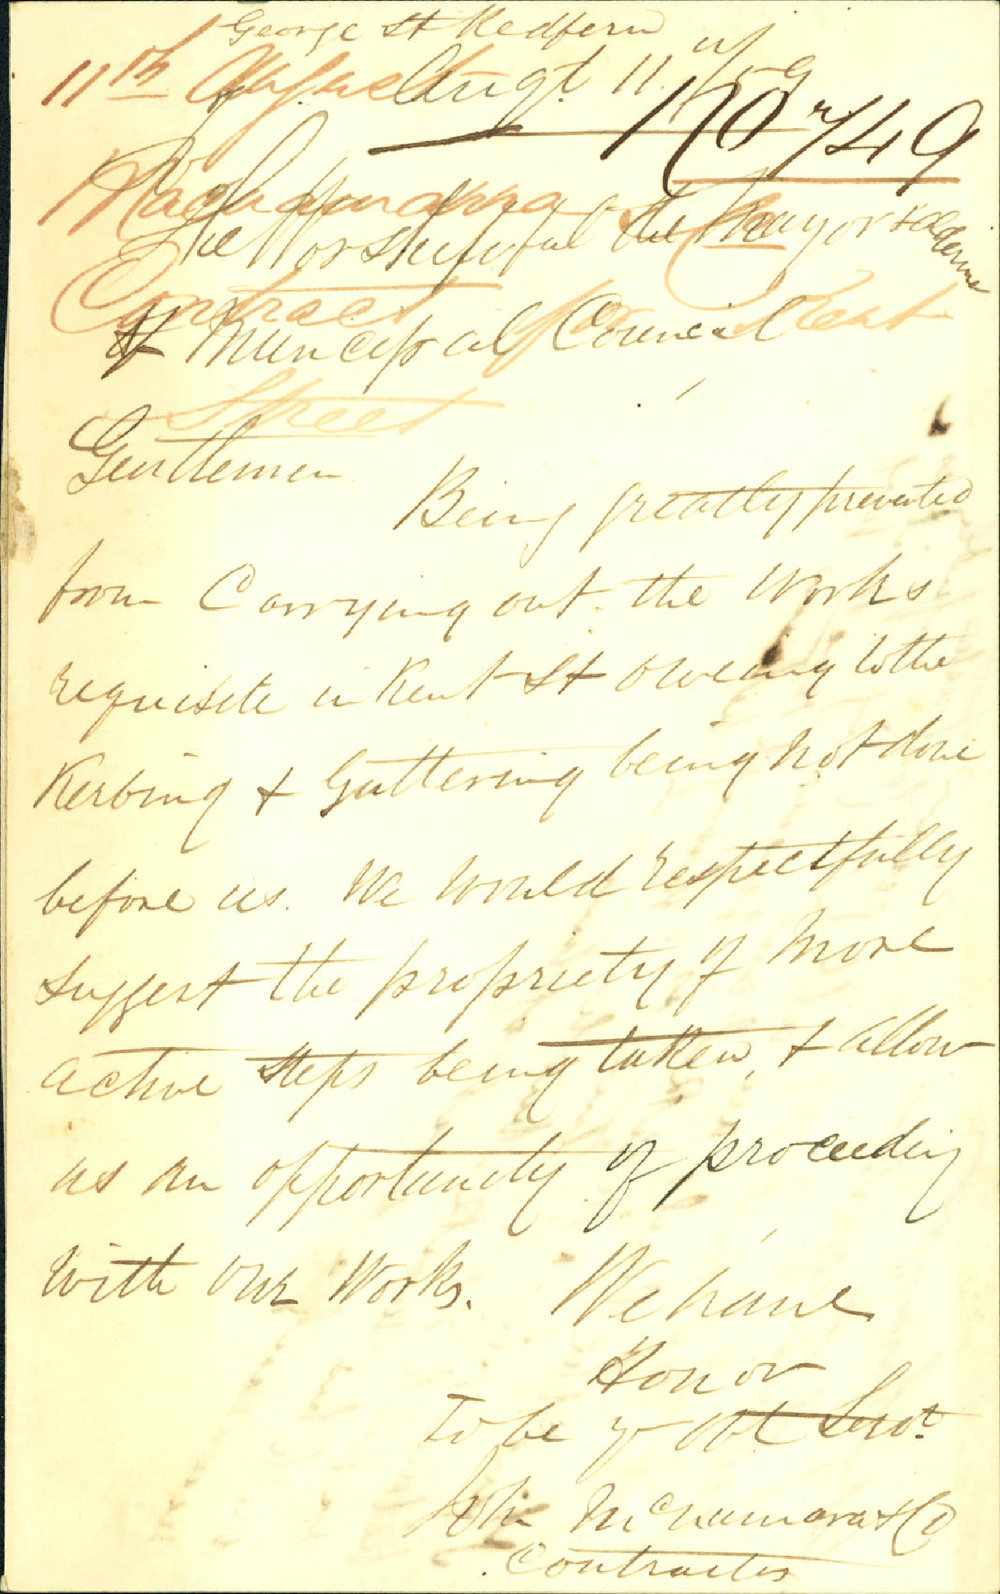 George St Redfern
11th August Augt. 11 /59
No 749
Macnamara & Co
The Worshipful the Mayor & Aldermen
Contract for Kent
of Muncipal Council
Street
Gentlemen
Being greatly prevented
from Carrying out the Works
requisite in Kent St oweing to the
Kerbing & Guttering being not done
before us. We Would respectfully
suggest the propriety of More
active steps being taken, & allow
us an opportunity of proceeding
with our Works. We have
Honor
To be yr Obt Servt
John McNamara & Co
Contractors